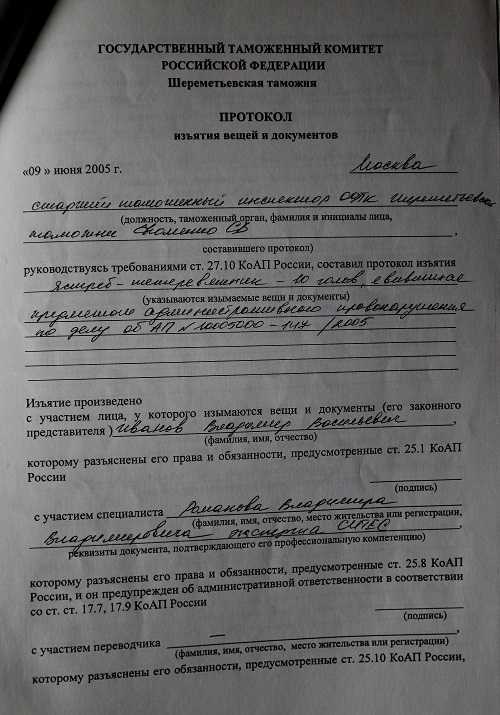 ГОСУДАРСТВЕННЫЙ ТАМОЖЕННЫЙ КОМИТЕТ
РОССИЙСКОЙ ФЕДЕРАЦИИ
Шереметьевская таможня
ПРОТОКОЛ
изъятия вещей и документов
«09 » июня 2005 г. Москва
старший таможенный инспектор ОФТК Шереметьевской
(должность, таможенный орган, фамилия и инициалы лица,
таможни
составившего протокол)
руководствуясь требованиями ст. 27.10 КоАП России, составил протокол изъятия
Ястреб-тетеревятник - 10 голов,
(указываются изымаемые вещи и документы)
предметом административного правонарушения
по делу об АП № 10005000- /2005
Изъятие произведено
с участием лица, у которого изымаются вещи и документы (его законного
представителя ) Иванов Владимир Васильевич ,
(фамилия, имя, отчество)
которому разъяснены его права и обязанности, предусмотренные ст. 25.1 КоАП
России
(подпись)
с участием специалиста Романова Владимира
(фамилия, имя, отчество, место жительства или регистрации,
Владимировича эксперта СИТЕС ,
реквизиты документа, подтверждающего его профессиональную компетенцию)
которому разъяснены его права и обязанности, предусмотренные ст. 25.8 КоАП
России, и он предупрежден об административной ответственности в соответствии
со ст. ст. 17.7, 17.9 КоАП России
(подпись)
с участием переводчика — ,
(фамилия, имя, отчество, место жительства или регистрации)
которому разъяснены его обязанности, предусмотренные ст. 25.10 КоАП России,